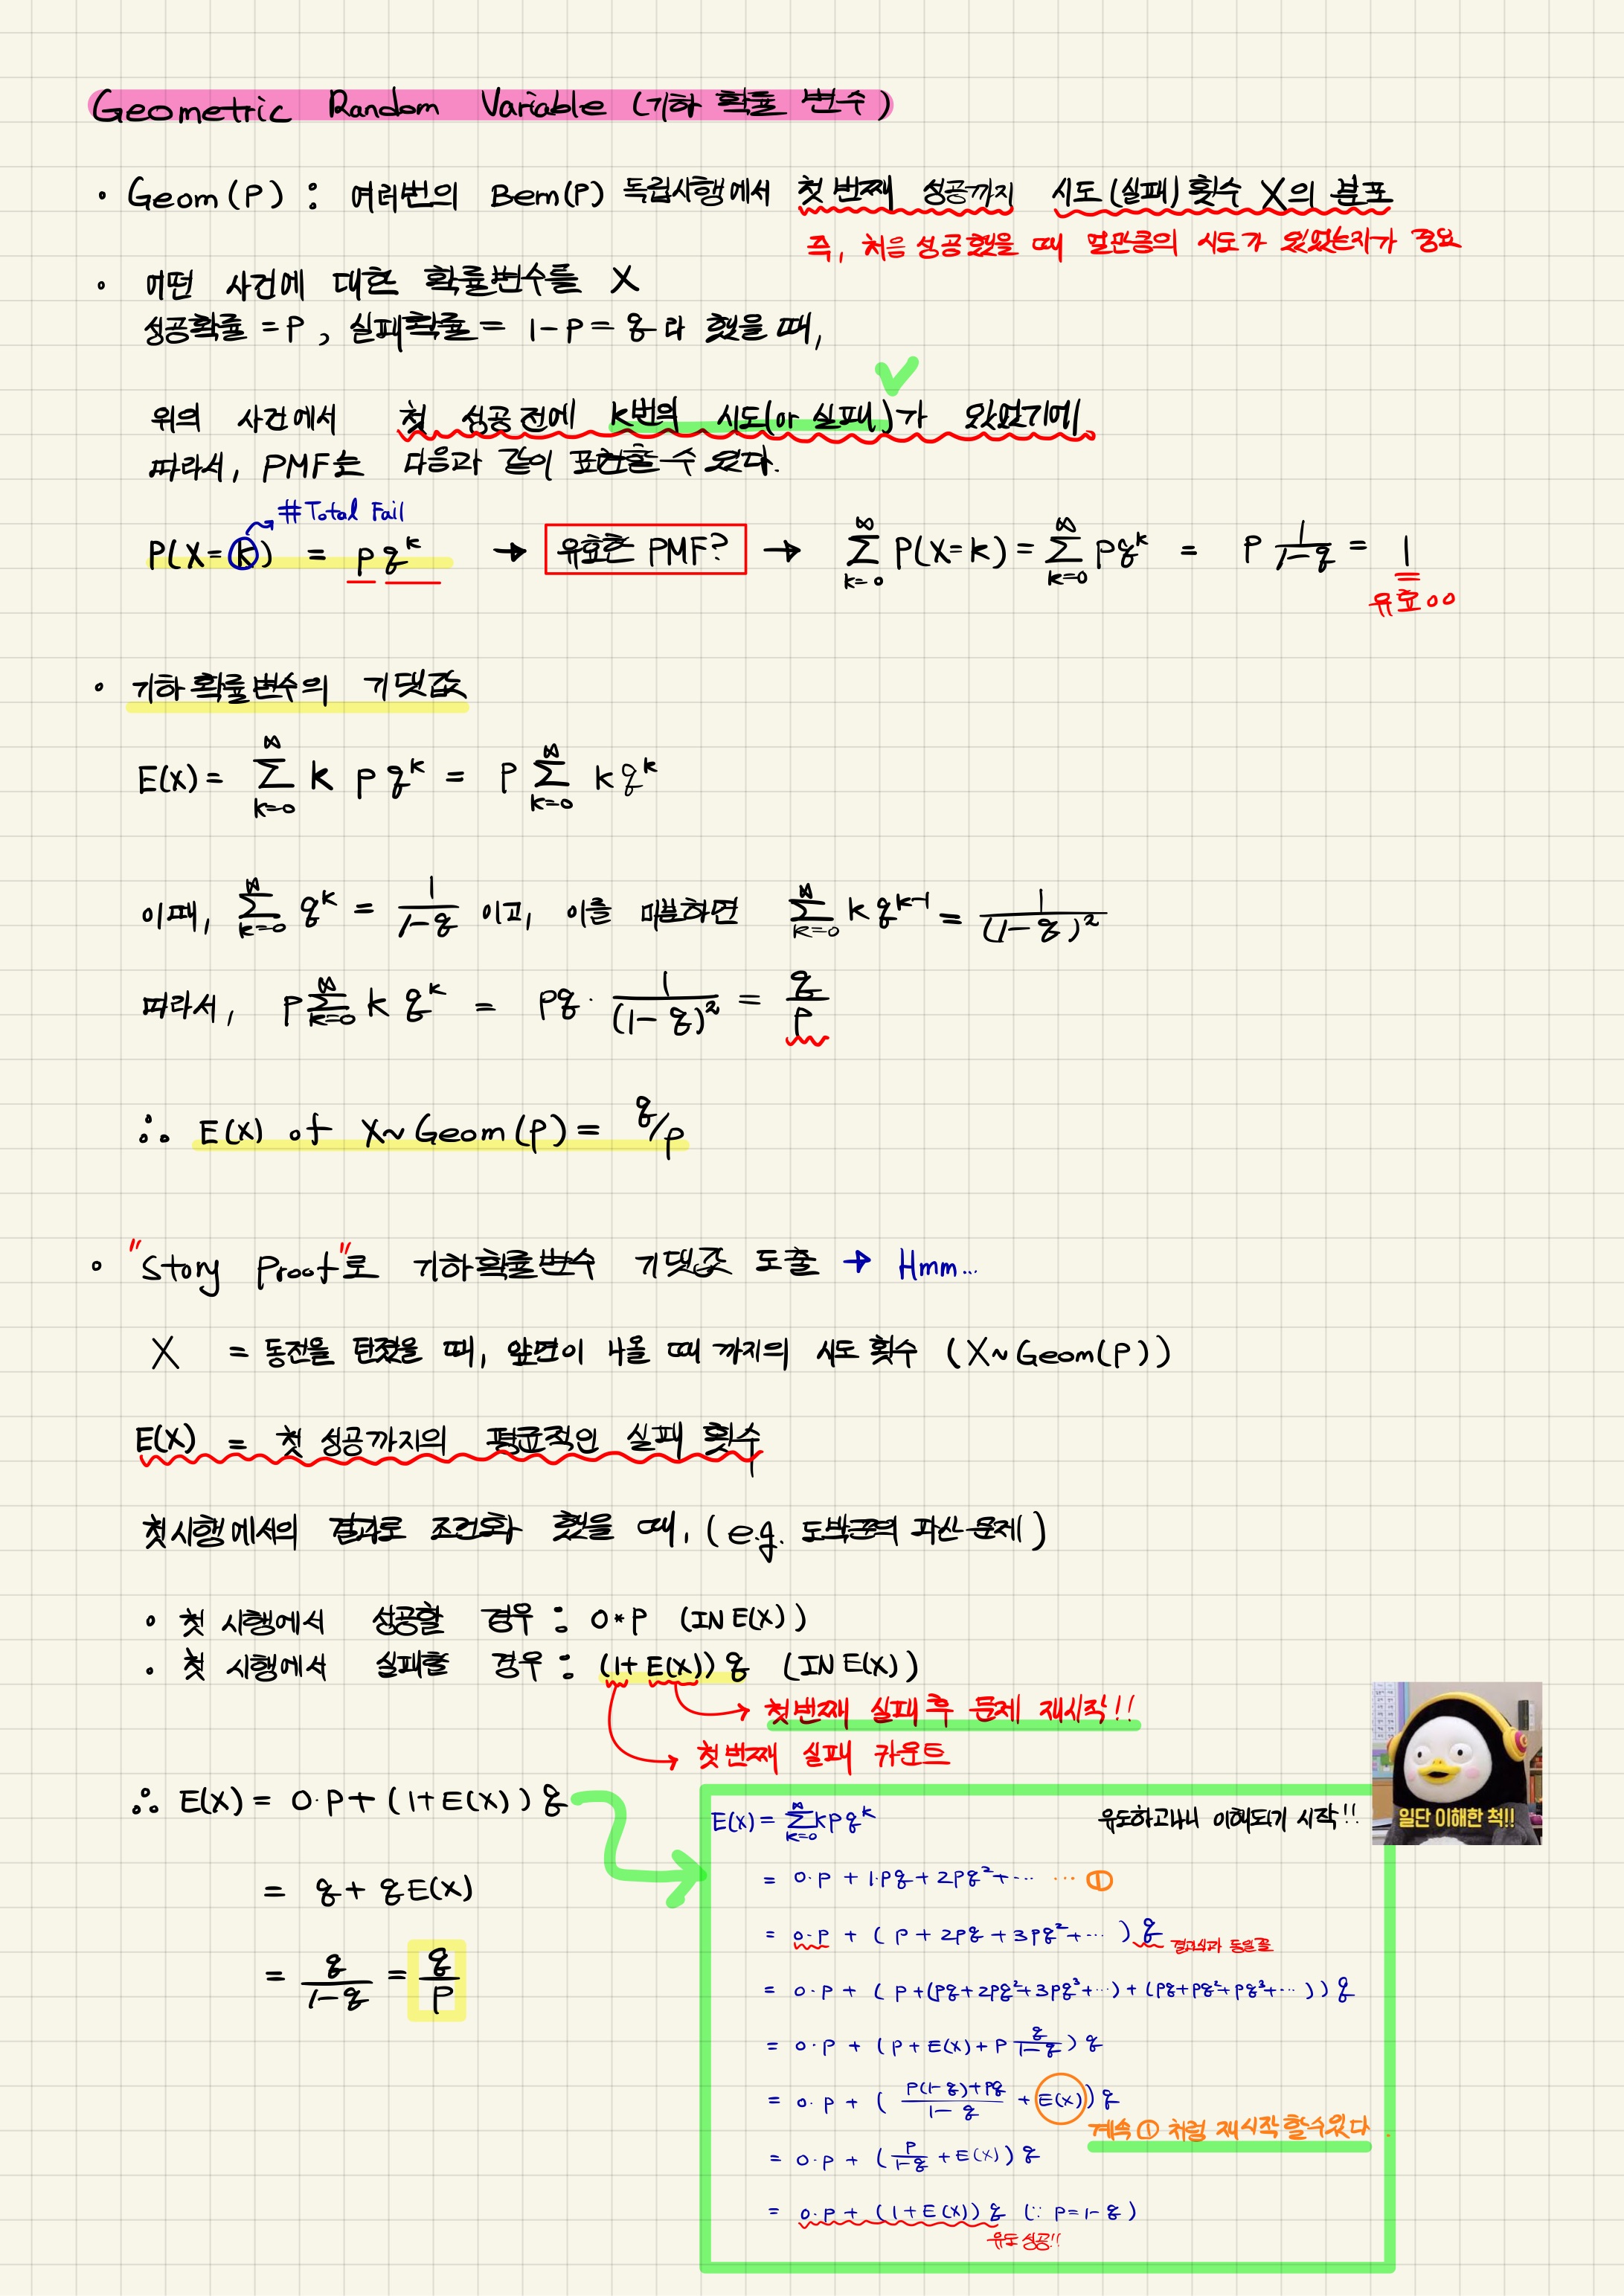 Geometric Random Variable (기하 확률 변수)
• Geom(P) : 여러번의 Bern(P) 독립시행에서 첫 번째 성공까지 시도(실패) 횟수 X의 분포
즉, 처음 성공했을 때 얼만큼의 시도가 있었는지가 중요
• 어떤 사건에 대한 확률변수를 X
성공확률 = P, 실패확률 = 1-P = q 라 했을 때,
위의 사건에서 첫 성공 전에 k번의 시도(or 실패)가 있었기에
따라서, PMF는 다음과 같이 표현할 수 있다.
#Total Fail
P(X=k) = pq^k → 유효한 PMF? → ∑_{k=0}^{∞} P(X=k) = ∑_{k=0}^{∞} pq^k = P 1/(1-q) = 1
유효oo
• 기하 확률변수의 기댓값
E(X) = ∑_{k=0}^{∞} k p q^k = P ∑_{k=0}^{∞} k q^k
이때, ∑_{k=0}^{∞} q^k = 1/(1-q) 이고, 이를 미분하면 ∑_{k=0}^{∞} k q^{k-1} = 1/(1-q)^2
따라서, P ∑_{k=0}^{∞} k q^k = pq · 1/(1-q)^2 = q/p
∴ E(X) of X~Geom(P) = q/p
• "Story Proof"로 기하확률변수 기댓값 도출 → Hmm...
X = 동전을 던졌을 때, 앞면이 나올 때 까지의 시도 횟수 (X~Geom(P))
E(X) = 첫 성공까지의 평균적인 실패 횟수
첫시행에서의 결과로 조건화 했을 때, (e.g. 도박꾼의 파산 문제)
• 첫 시행에서 성공할 경우 : 0*P (IN E(X))
• 첫 시행에서 실패할 경우 : (1+E(X))q (IN E(X))
첫번째 실패 후 문제 재시작!!
첫번째 실패 카운트
∴ E(X) = 0·P + (1+E(X))q
= q + qE(X)
= q/(1-q) = q/p
E(X) = ∑_{k=0}^{∞} kpq^k 유도하고나니 이해되기 시작!!
일단 이해한 척!!
= 0·P + 1·Pq + 2Pq^2 + ··· ··· ①
= 0·P + (P + 2Pq + 3Pq^2 + ···)q 결과식과 동일꼴
= 0·P + (P + (Pq+2Pq^2+3Pq^3+···) + (Pq+Pq^2+Pq^3+···))q
= 0·P + (P + E(X) + P q/(1-q))q
= 0·P + ((P(1-q)+Pq)/(1-q) + E(X))q
계속 ① 처럼 재시작 할수있다.
= 0·P + (P/(1-q) + E(X))q
= 0·P + (1+E(X))q (∵ P=1-q)
유도 성공!!